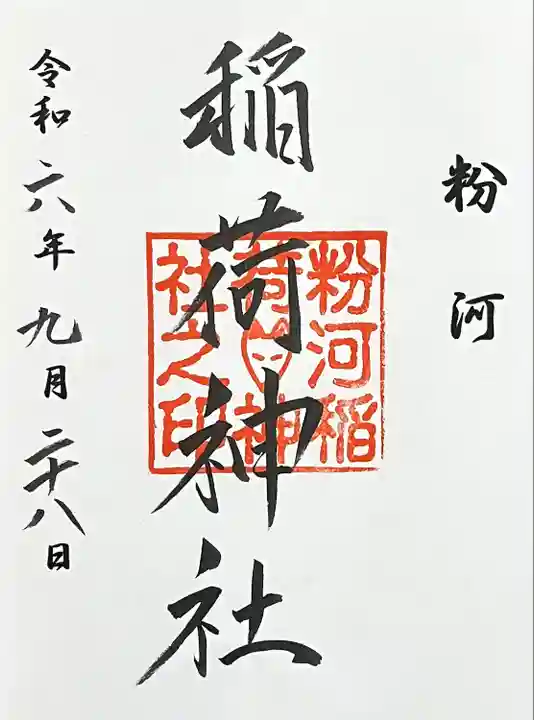 粉河
稲荷神社
粉河稲
荷神
社之印
令和六年九月二十八日